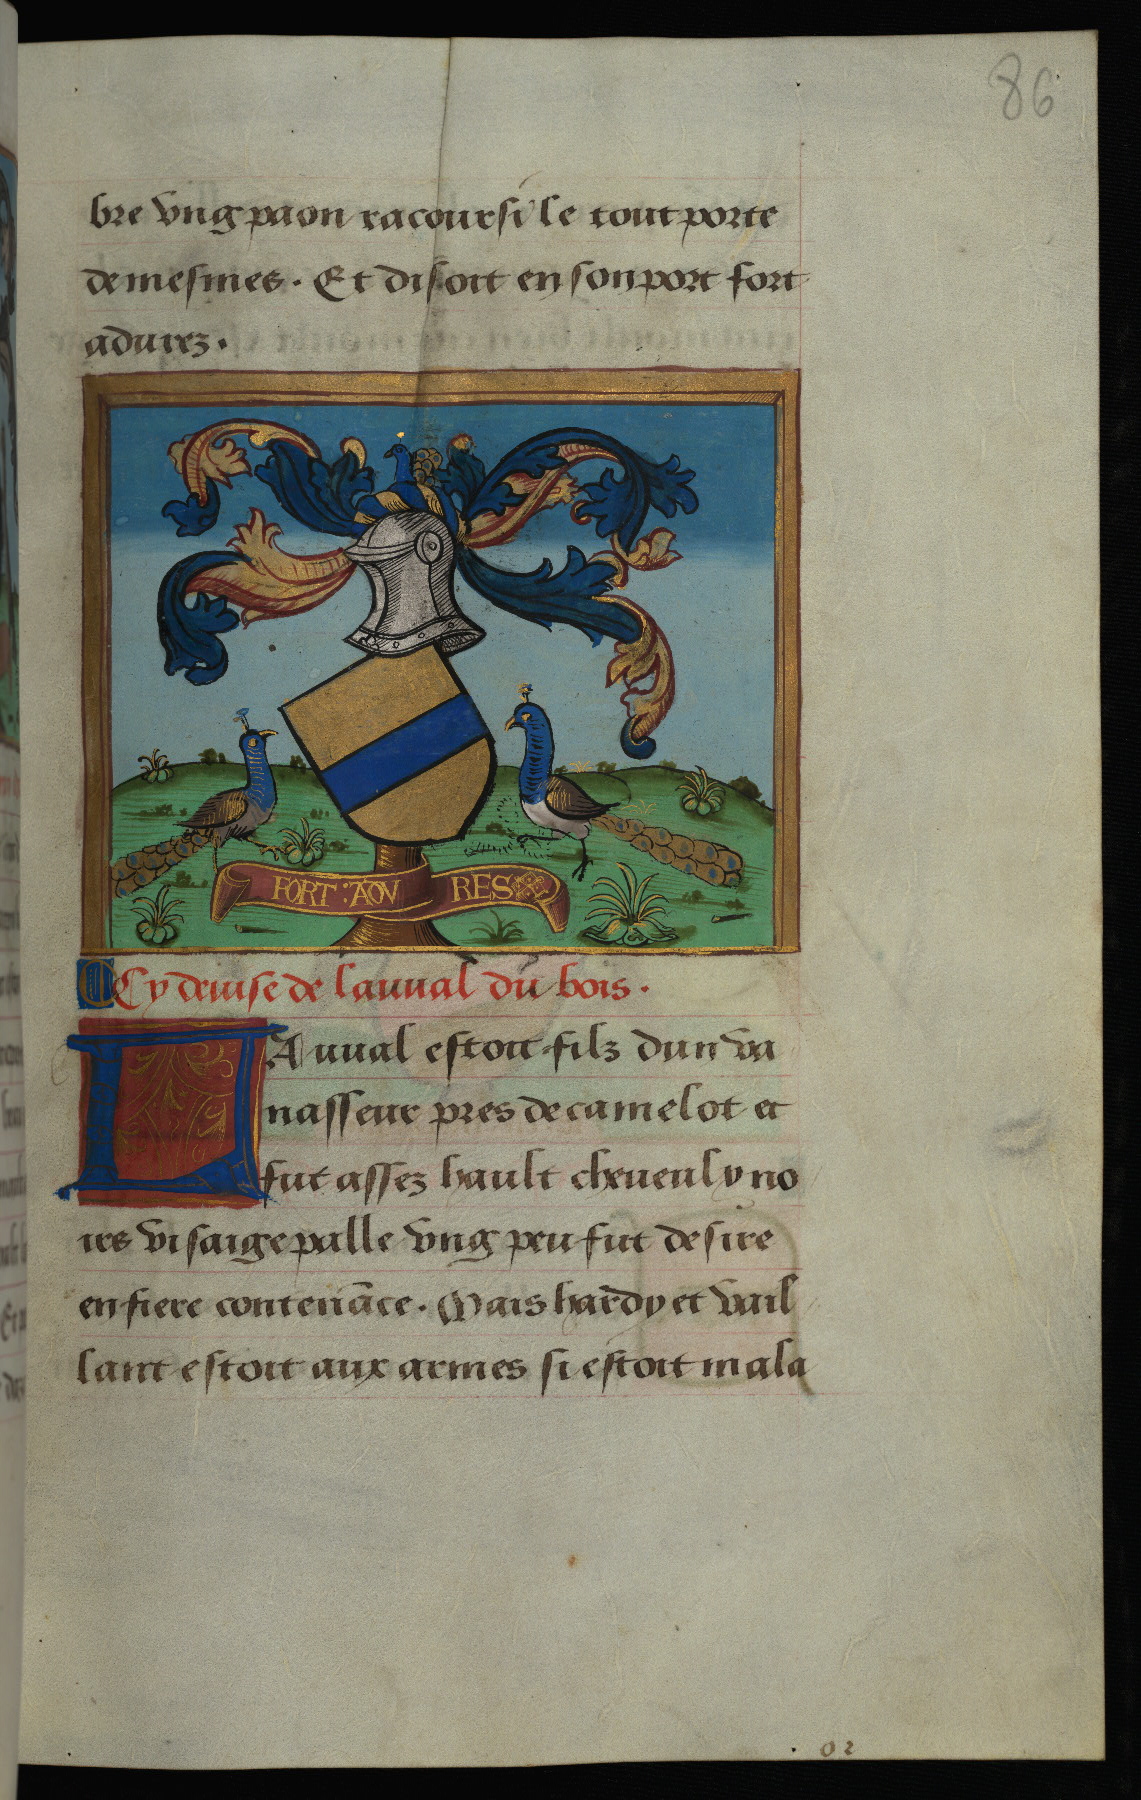 86
bre vng paon racoursi le tout porte
de mesmes. Et disoit en son port fort
aduirez.
FORT : AOV RES
Cy deuise de lauual du bois.
LAuual estoit filz dun va
nasseur pres de camelot et
fut assez hault cheueulx no
irs visaige palle vng peu fut de sire
en fiere contenāce. Mais hardy et vail
lant estoit aux armes si estoit mala